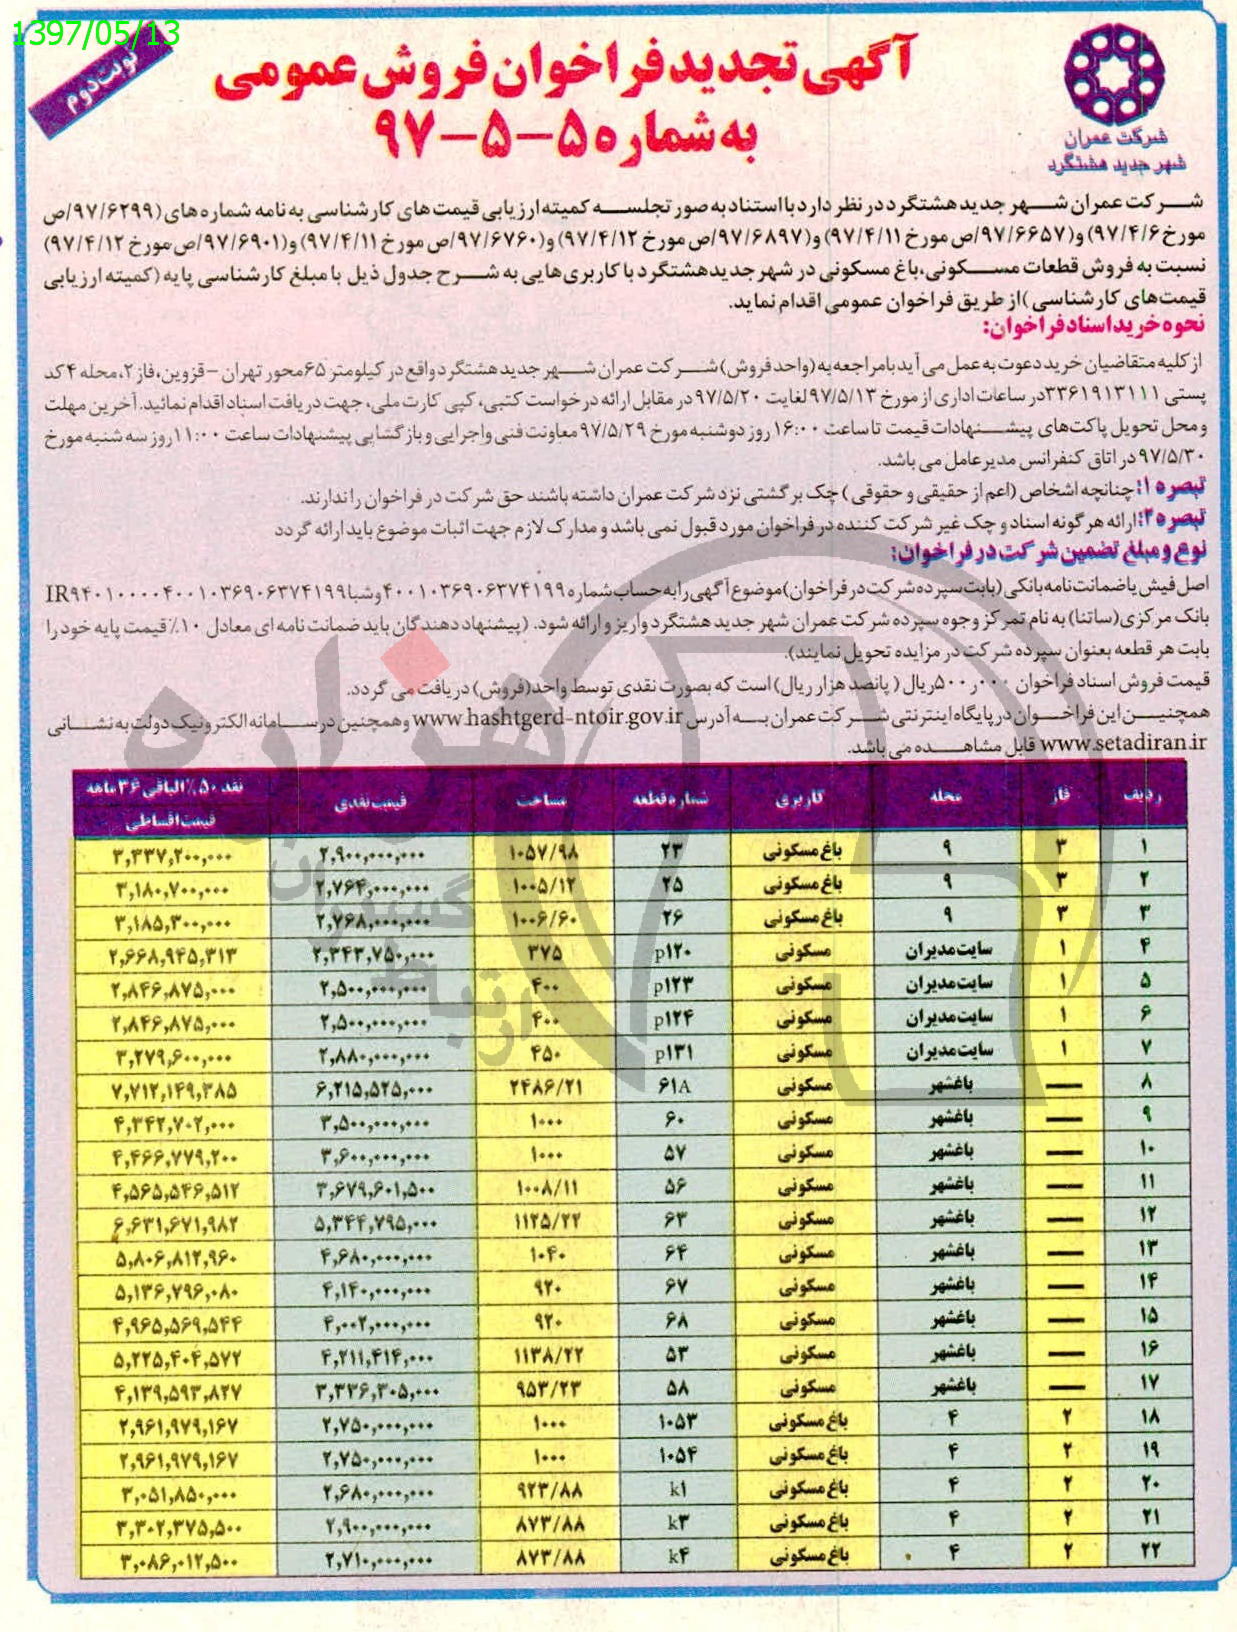 1397/05/13
نوبت دوم
آگهی تجدید فراخوان فروش عمومی
به شماره ۵-۵-۹۷
شرکت عمران
شهر جدید هشتگرد
شرکت عمران شهر جدید هشتگرد در نظر دارد با استناد به صورتجلسه کمیته ارزیابی قیمت های کارشناسی به نامه شماره های (۹۷/۶۲۹۹/ص
مورخ ۹۷/۴/۶) و (۹۷/۶۶۵۷/ص مورخ ۹۷/۴/۱۱) و (۹۷/۶۸۹۷/ص مورخ ۹۷/۴/۱۲) و (۹۷/۶۷۶۰/ص مورخ ۹۷/۴/۱۱) و (۹۷/۶۹۰۱/ص مورخ ۹۷/۴/۱۲)
نسبت به فروش قطعات مسکونی، باغ مسکونی در شهر جدید هشتگرد با کاربری هایی به شرح جدول ذیل با مبلغ کارشناسی پایه (کمیته ارزیابی
قیمت های کارشناسی) از طریق فراخوان عمومی اقدام نماید.
نحوه خرید اسناد فراخوان:
از کلیه متقاضیان خرید دعوت به عمل می آید با مراجعه به (واحد فروش) شرکت عمران شهر جدید هشتگرد واقع در کیلومتر ۶۵ محور تهران - قزوین، فاز ۲، محله ۴ کد
پستی ۳۳۶۱۹۱۳۱۱۱ در ساعات اداری از مورخ ۹۷/۵/۱۳ لغایت ۹۷/۵/۲۰ در مقابل ارائه درخواست کتبی، کپی کارت ملی، جهت دریافت اسناد اقدام نمائید. آخرین مهلت
و محل تحویل پاکت های پیشنهادات قیمت تا ساعت ۱۶:۰۰ روز دوشنبه مورخ ۹۷/۵/۲۹ معاونت فنی و اجرایی و بازگشایی پیشنهادات ساعت ۱۱:۰۰ روز سه شنبه مورخ
۹۷/۵/۳۰ در اتاق کنفرانس مدیر عامل می باشد.
تبصره ۱: چنانچه اشخاص (اعم از حقیقی و حقوقی) چک برگشتی نزد شرکت عمران داشته باشند حق شرکت در فراخوان را ندارند.
تبصره ۲: ارائه هر گونه اسناد و چک غیر شرکت کننده در فراخوان مورد قبول نمی باشد و مدارک لازم جهت اثبات موضوع باید ارائه گردد
نوع و مبلغ تضمین شرکت در فراخوان:
اصل فیش یا ضمانت نامه بانکی (بابت سپرده شرکت در فراخوان) موضوع آگهی را به حساب شماره ۴۰۰۱۰۳۶۹۰۶۳۷۴۱۹۹ و شبا IR۹۴۰۱۰۰۰۰۴۰۰۱۰۳۶۹۰۶۳۷۴۱۹۹
بانک مرکزی (ساتنا) به نام تمرکز وجوه سپرده شرکت عمران شهر جدید هشتگرد واریز و ارائه شود. (پیشنهاد دهندگان باید ضمانت نامه ای معادل ۱۰٪ قیمت پایه خود را
بابت هر قطعه بعنوان سپرده شرکت در مزایده تحویل نمایند).
قیمت فروش اسناد فراخوان ۵۰۰ر۰۰۰ ریال (پانصد هزار ریال) است که بصورت نقدی توسط واحد (فروش) دریافت می گردد.
همچنین این فراخوان در پایگاه اینترنتی شرکت عمران به آدرس www.hashtgerd-ntoir.gov.ir و همچنین در سامانه الکترونیک دولت به نشانی
www.setadiran.ir قابل مشاهده می باشد.
ردیف فاز محله کاربری شماره قطعه مساحت قیمت نقدی نقد ۵۰٪ الباقی ۳۶ ماهه
قیمت اقساطی
۱ ۳ ۹ باغ مسکونی ۲۳ ۱۰۵۷/۹۸ ۲,۹۰۰,۰۰۰,۰۰۰ ۳,۳۳۷,۲۰۰,۰۰۰
۲ ۳ ۹ باغ مسکونی ۲۵ ۱۰۰۵/۱۲ ۲,۷۶۴,۰۰۰,۰۰۰ ۳,۱۸۰,۷۰۰,۰۰۰
۳ ۳ ۹ باغ مسکونی ۲۶ ۱۰۰۶/۶۰ ۲,۷۶۸,۰۰۰,۰۰۰ ۳,۱۸۵,۳۰۰,۰۰۰
۴ ۱ سایت مدیران مسکونی p۱۲۰ ۳۷۵ ۲,۳۴۳,۷۵۰,۰۰۰ ۲,۶۶۸,۹۴۵,۳۱۳
۵ ۱ سایت مدیران مسکونی p۱۲۳ ۴۰۰ ۲,۵۰۰,۰۰۰,۰۰۰ ۲,۸۴۶,۸۷۵,۰۰۰
۶ ۱ سایت مدیران مسکونی p۱۲۴ ۴۰۰ ۲,۵۰۰,۰۰۰,۰۰۰ ۲,۸۴۶,۸۷۵,۰۰۰
۷ ۱ سایت مدیران مسکونی p۱۳۱ ۴۵۰ ۲,۸۸۰,۰۰۰,۰۰۰ ۳,۲۷۹,۶۰۰,۰۰۰
۸ — باغشهر مسکونی ۶۱A ۲۴۸۶/۲۱ ۶,۲۱۵,۵۲۵,۰۰۰ ۷,۷۱۲,۱۴۹,۳۸۵
۹ — باغشهر مسکونی ۶۰ ۱۰۰۰ ۳,۵۰۰,۰۰۰,۰۰۰ ۴,۳۴۲,۷۰۲,۰۰۰
۱۰ — باغشهر مسکونی ۵۷ ۱۰۰۰ ۳,۶۰۰,۰۰۰,۰۰۰ ۴,۴۶۶,۷۷۹,۲۰۰
۱۱ — باغشهر مسکونی ۵۶ ۱۰۰۸/۱۱ ۳,۶۷۹,۶۰۱,۵۰۰ ۴,۵۶۵,۵۴۶,۵۱۲
۱۲ — باغشهر مسکونی ۶۳ ۱۱۲۵/۲۲ ۵,۳۴۴,۷۹۵,۰۰۰ ۶,۶۳۱,۶۷۱,۹۸۲
۱۳ — باغشهر مسکونی ۶۴ ۱۰۴۰ ۴,۶۸۰,۰۰۰,۰۰۰ ۵,۸۰۶,۸۱۲,۹۶۰
۱۴ — باغشهر مسکونی ۶۷ ۹۲۰ ۴,۱۴۰,۰۰۰,۰۰۰ ۵,۱۳۶,۷۹۶,۰۸۰
۱۵ — باغشهر مسکونی ۶۸ ۹۲۰ ۴,۰۰۲,۰۰۰,۰۰۰ ۴,۹۶۵,۵۶۹,۵۴۴
۱۶ — باغشهر مسکونی ۵۳ ۱۱۳۸/۲۲ ۴,۲۱۱,۴۱۴,۰۰۰ ۵,۲۲۵,۴۰۴,۵۷۲
۱۷ — باغشهر مسکونی ۵۸ ۹۵۳/۲۳ ۳,۳۳۶,۳۰۵,۰۰۰ ۴,۱۳۹,۵۹۳,۸۲۷
۱۸ ۲ ۴ باغ مسکونی ۱۰۵۳ ۱۰۰۰ ۲,۷۵۰,۰۰۰,۰۰۰ ۲,۹۶۱,۹۷۹,۱۶۷
۱۹ ۲ ۴ باغ مسکونی ۱۰۵۴ ۱۰۰۰ ۲,۷۵۰,۰۰۰,۰۰۰ ۲,۹۶۱,۹۷۹,۱۶۷
۲۰ ۲ ۴ باغ مسکونی k۱ ۹۲۳/۸۸ ۲,۶۸۰,۰۰۰,۰۰۰ ۳,۰۵۱,۸۵۰,۰۰۰
۲۱ ۲ ۴ باغ مسکونی k۳ ۸۷۳/۸۸ ۲,۹۰۰,۰۰۰,۰۰۰ ۳,۳۰۲,۳۷۵,۵۰۰
۲۲ ۲ ۴ باغ مسکونی k۴ ۸۷۳/۸۸ ۲,۷۱۰,۰۰۰,۰۰۰ ۳,۰۸۶,۰۱۲,۵۰۰